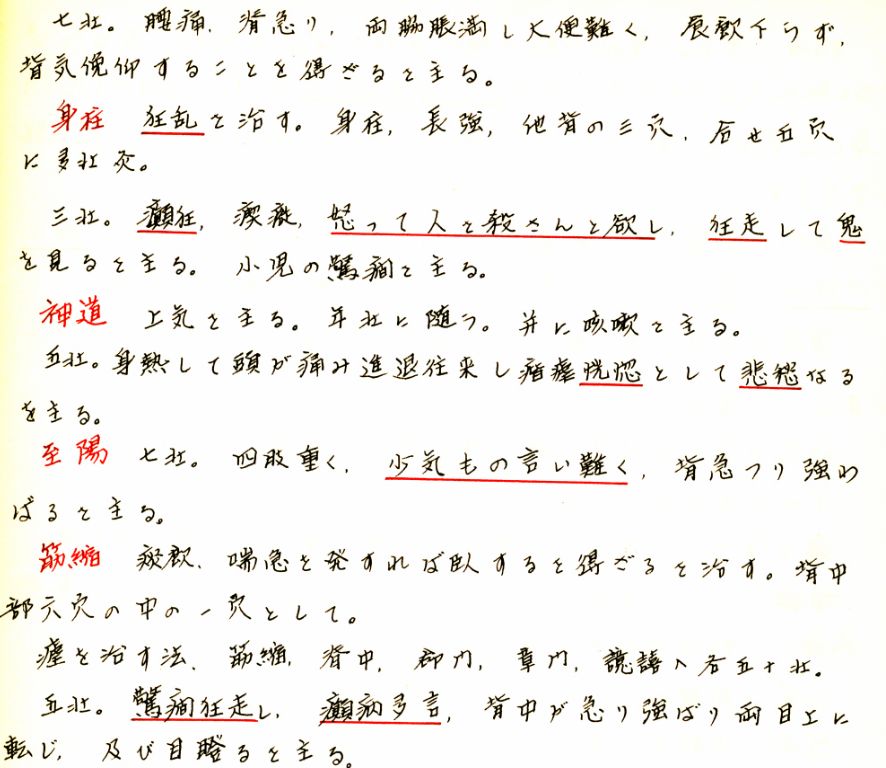 七壮。腰痛、脊急り、両脇脹満し大便難く、食飲下らず、
背気俛仰することを得ざるを主る。
身柱 狂乱を治す。身柱、長強、他背の三穴、合せ五穴
に多壮灸。
三壮。癲狂、瘈瘲、怒って人を殺さんと欲し、狂走して鬼
を見るを主る。小児の驚癇を主る。
神道 上気を主る。年壮に随う。并に咳嗽を主る。
五壮。身熱して頭が痛み進退往来し痎瘧恍惚として悲愁なる
を主る。
至陽 七壮。四肢重く、少気もの言い難く、背急つり強わ
ばるを主る。
筋縮 痰飲、喘急を発すれば臥するを得ざるを治す。背中
部六穴の中の一穴として。
瘧を治す法、筋縮、脊中、郄門、章門、譩譆へ各五十壮。
五壮。驚癇狂走し、癲病多言、背中が急り強ばり両目上に
転じ、及び目瞪るを主る。